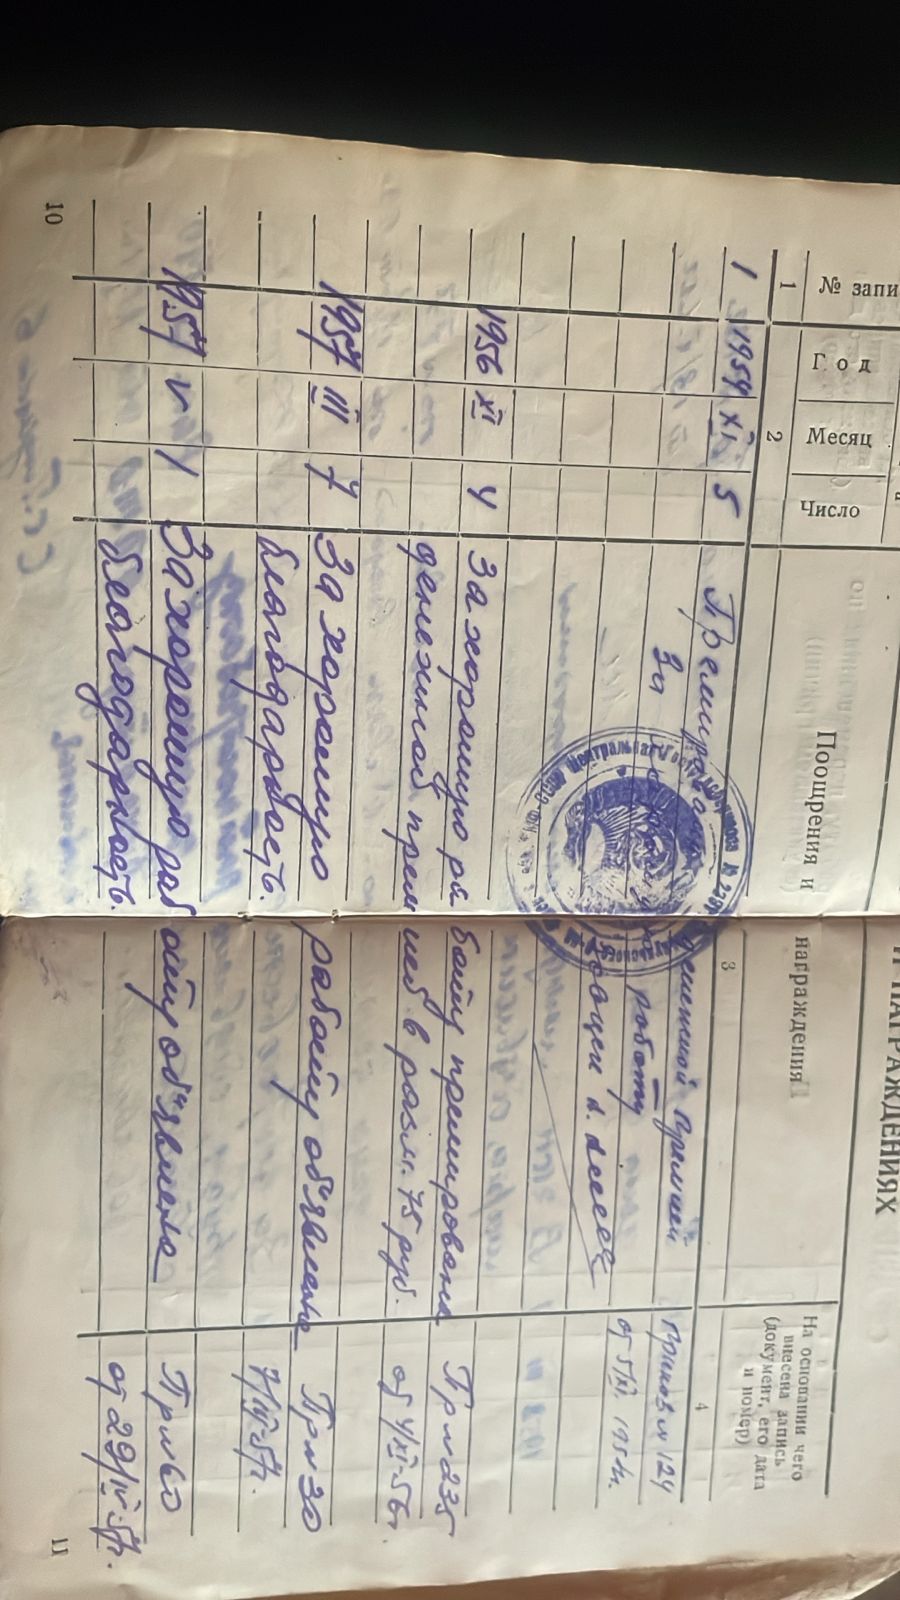 И НАГРАЖДЕНИЯХ
№ запи
Год
Месяц
Число
Поощрения и награждения
На основании чего
внесена запись
(документ, его дата
и номер)
1
2
3
4
1 1954 XI 5 Премирована денежной премией Приказ № 124
За работу от 5/XI 195
1956 XI 4 За хорошую работу премирована Пр № 235
денежной премией в разм. 75 руб. от 4/XI-56г
1957 III 7 За хорошую работу объявлена Пр № 30
благодарность. 7/III-57г.
1957 V 1 За хорошую работу объявлена Пр № 60
благодарность. от 29/IV-57г.
10
11